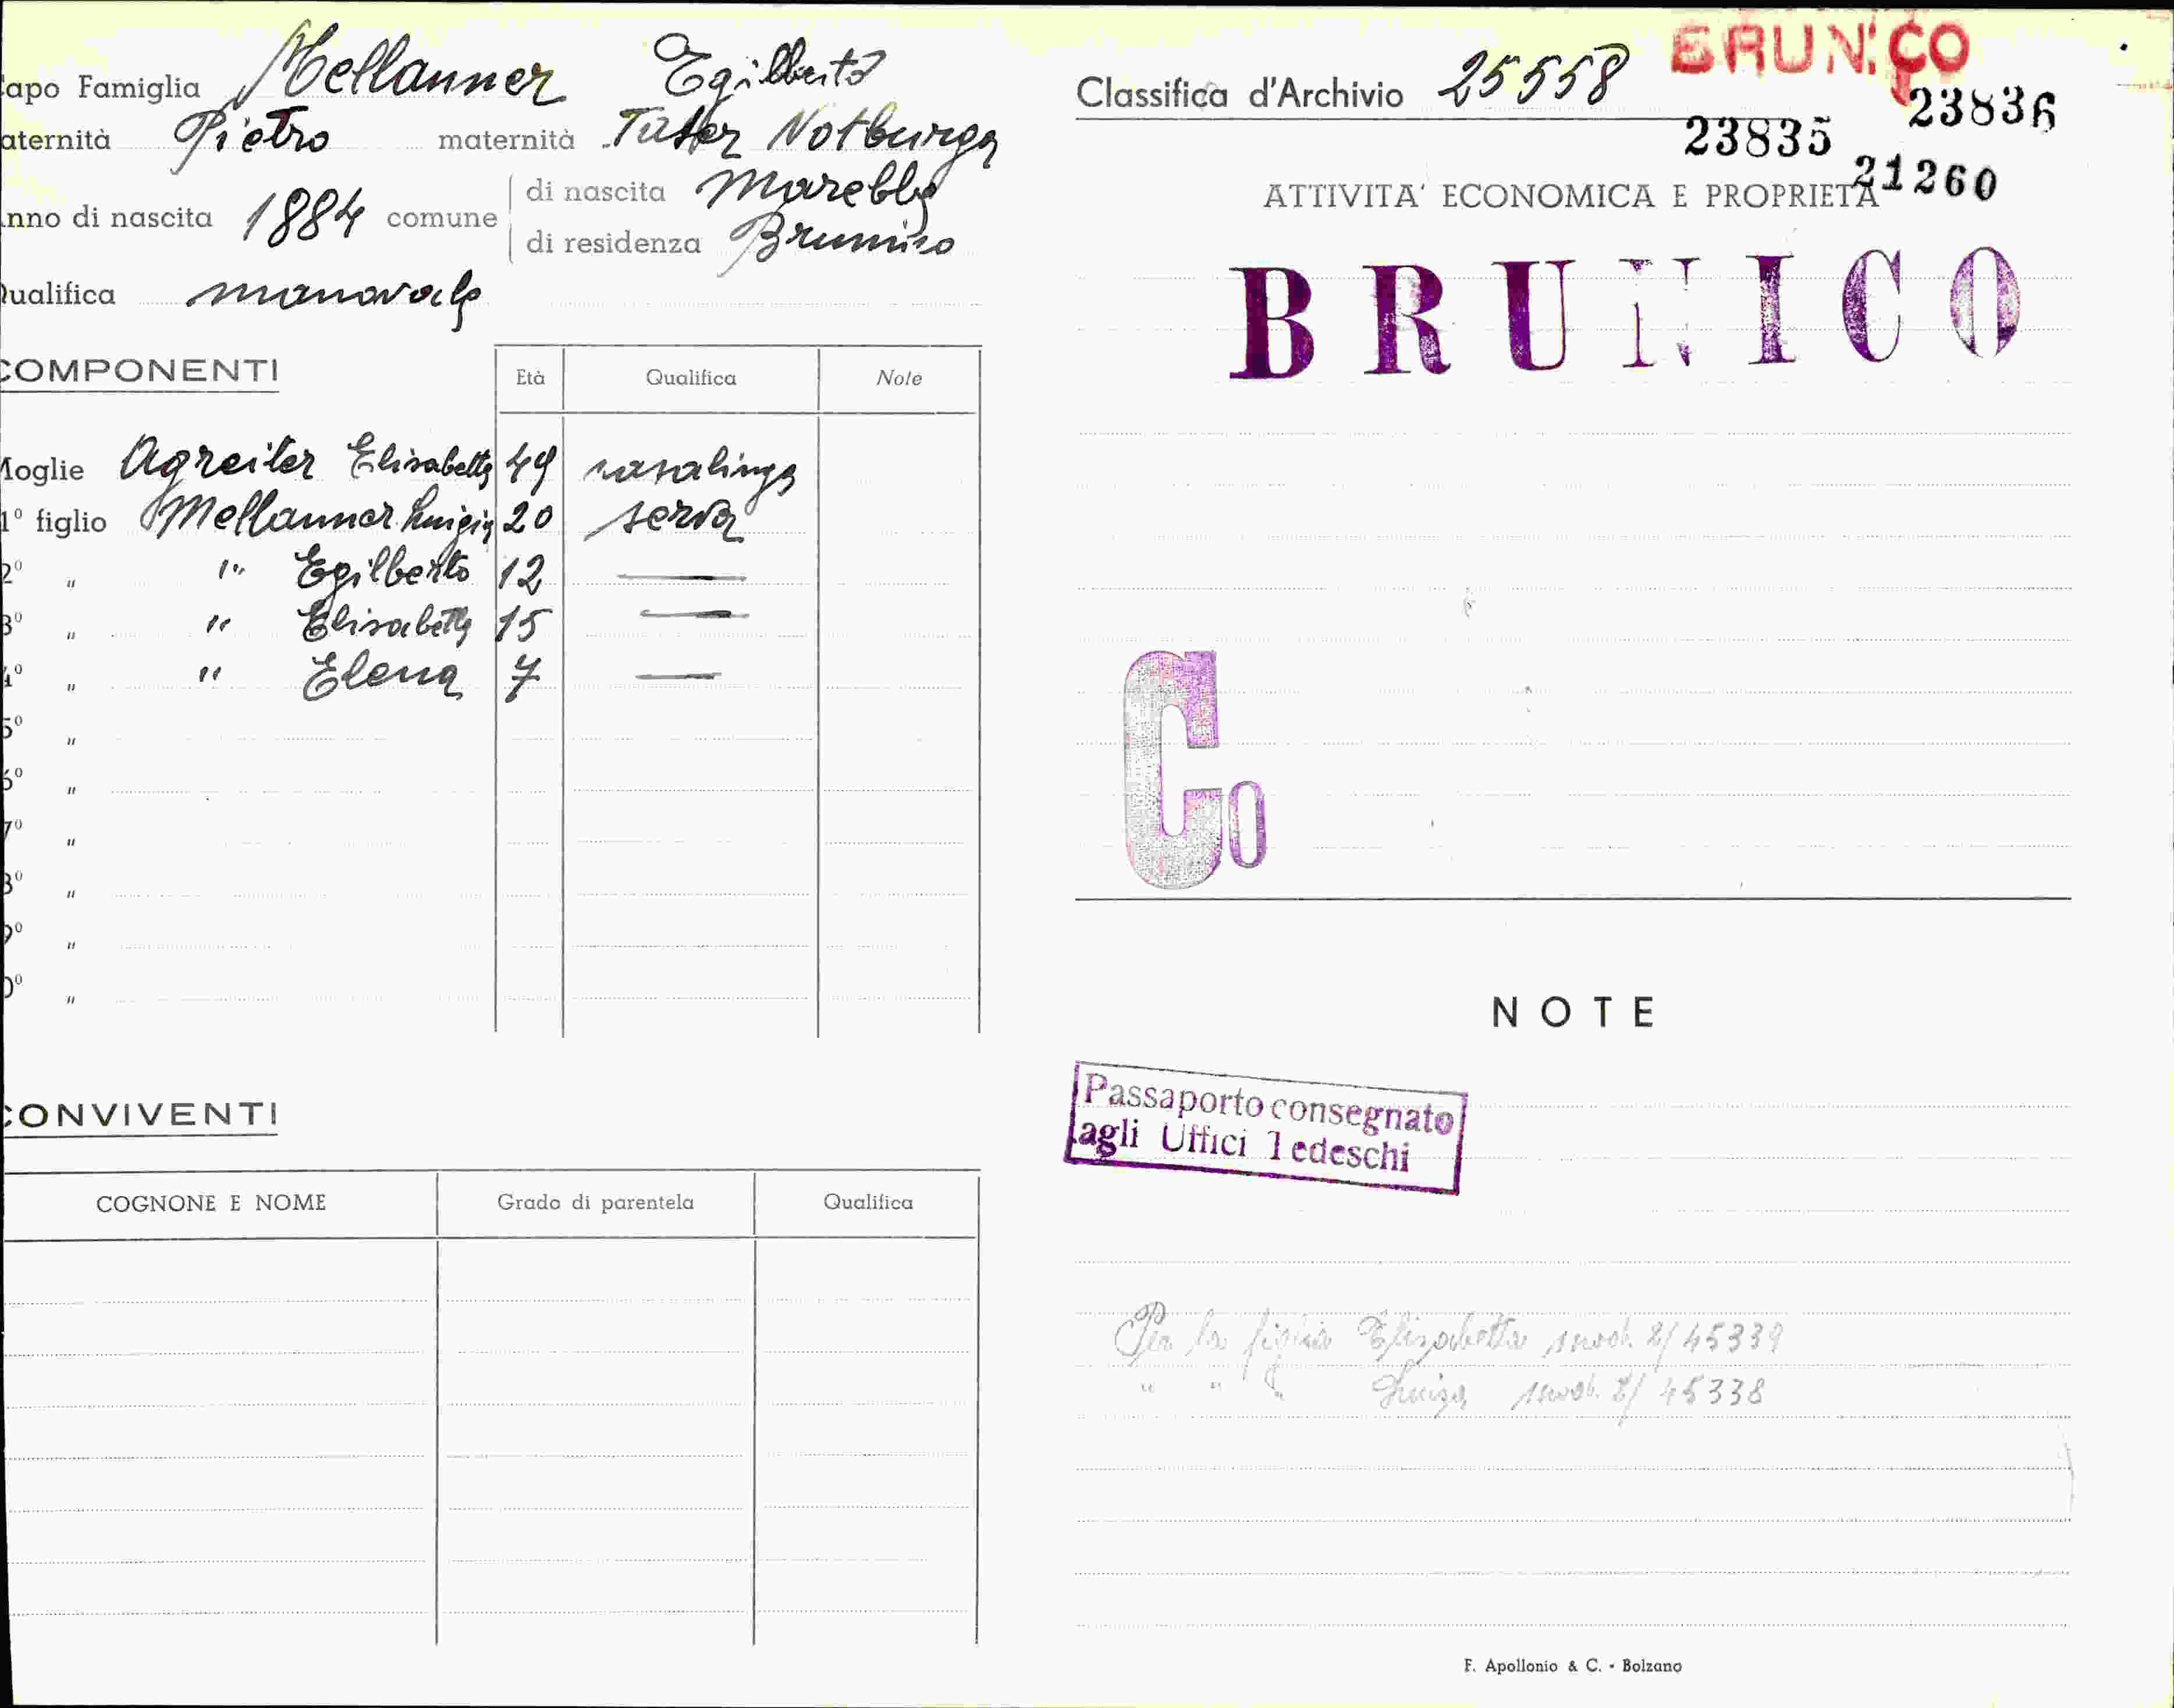 apo Famiglia Mellauner Egilberto
aternità Pietro maternità Taster Notburga
nno di nascita 1884 comune di nascita Marebbe
di residenza Brunico
ualifica manovale
COMPONENTI Età Qualifica Note
Moglie Agreiter Elisabetta 49 casalinga
1° figlio Mellauner Luigia 20 serva
2° " " Egilberto 12 —
3° " " Elisabetta 15 —
4° " " Elena 7 —
5° "
6° "
7° "
8° "
9° "
0° "
CONVIVENTI
COGNONE E NOME Grado di parentela Qualifica
BRUNICO
Classifica d'Archivio 25558
23835 23836
21260
ATTIVITA' ECONOMICA E PROPRIETA
BRUNICO
Co
NOTE
Passaporto consegnato
agli Uffici Tedeschi
Per la figlia Elisabetta mod. 2/45339
" " " Luigia mod. 2/45338
F. Apollonio & C. - Bolzano